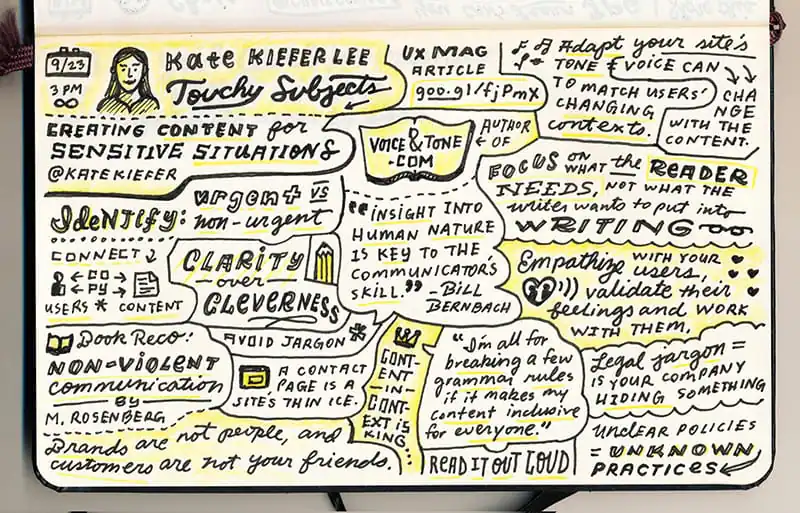 9/23
3 PM
Kate KIEFER LEE
Touchy Subjects
CREATING CONTENT for
SENSITIVE SITUATIONS
@KATEKIEFER
UX MAG
ARTICLE
goo.gl/fjPmX
Adapt your site's
TONE & VOICE CAN
TO MATCH USERS'
CHANGING
contexts.
CHA
NGE
WITH THE
CONTENT.
AUTHOR
OF
VOICE &
TONE
.COM
FOCUS ON
WHAT the READER
NEEDS, NOT WHAT THE
writer wants to put into
WRITING
IdeNTify:
urgent vs
non-urgent
CONNECT
CO
PY
USERS * CONTENT
CLARITY
- over -
CLEVERNESS
AVOID JARGON *
"INSIGHT INTO
HUMAN NATURE
IS KEY TO THE
COMMUNICATORS
SKILL." -BILL
BERNBACH
Empathize WITH YOUR
users,
validate their
feelings and WORK
WITH THEM.
Book Reco:
NON-VIOLENT
communication
BY
M. ROSENBERG
A CONTACT
PAGE IS A
SITE'S THIN ICE.
CONT-
ENT
-IN-
CONT-
EXT IS
KING
"I'm all for
breaking a few
grammar rules
if it makes my
content inclusive
for everyone."
READ IT OUT LOUD
Legal jargon =
IS YOUR COMPANY
HIDING SOMETHING
UNCLEAR POLICIES
= UNKNOWN
PRACTICES
Brands are not people, and
customers are not your friends.